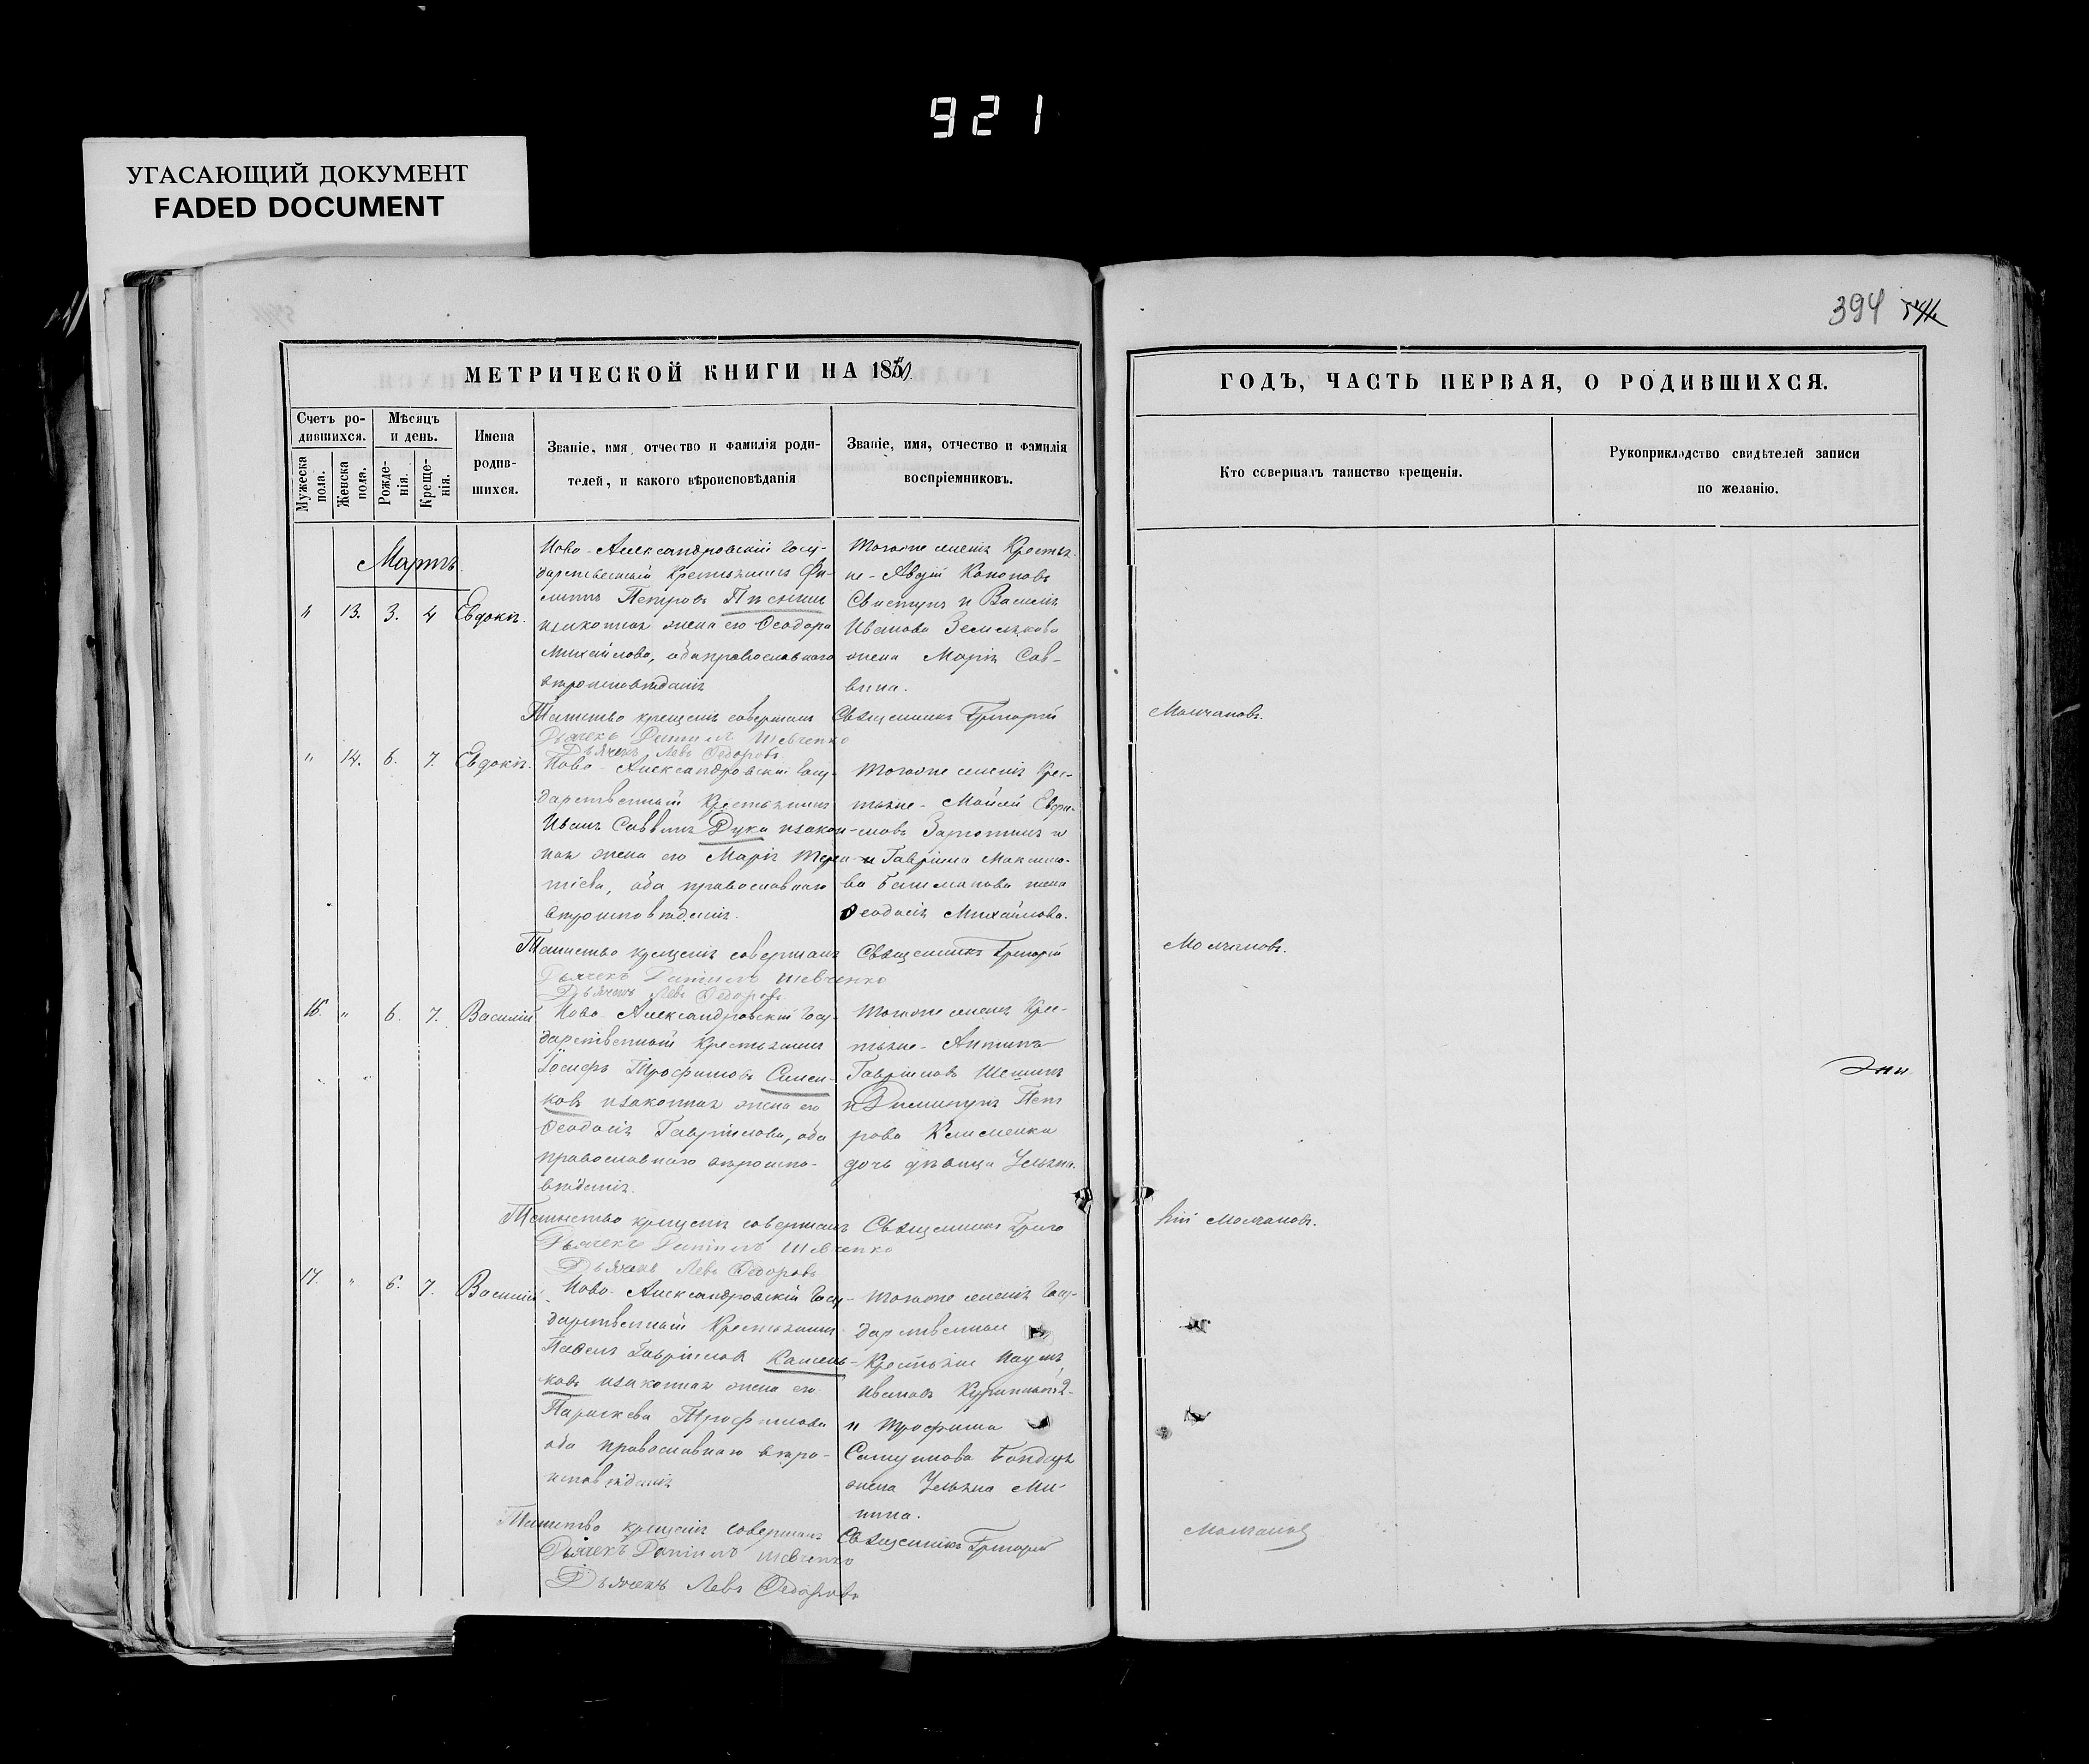 921
УГАСАЮЩИЙ ДОКУМЕНТ
FADED DOCUMENT
394
МЕТРИЧЕСКОЙ КНИГИ НА 18
ГОДЪ, ЧАСТЬ ПЕРВАЯ, О РОДИВШИХСЯ.
Счетъ ро-
дившихся.
Мужеска
пола.
Женска
пола.
Мѣсяцъ
и день.
Рожде-
нія.
Креще-
нія.
Имена
родив-
шихся.
Званіе, имя, отчество и фамилія роди-
телей, и какого вѣроисповѣданія
Званіе, имя, отчество и фамилія
воспріемниковъ.
Кто совершалъ таинство крещенія.
Рукоприкладство свидѣтелей записи
по желанію.
Мартъ.
" 13. 3. 4 Евдокія.
Ново-Александровскій Госу-
дарственный Крестьянинъ Фи-
липпъ Петровъ
изаконная жена его Ѳеодора
Михайлова, оба православнаго
вѣроисповѣданія
Тогоже селенія Крестья-
не - Авдій Кононовъ
Свистунъ и Василія
Иванова Землякова
жена Марія Сав-
вина.
Таинство крещенія совершалъ Священникъ Григорій
Молчановъ.
Дьячекъ Даніилъ Шевченко
Дьячекъ Левъ Ѳедоровъ
" 14. 6. 7. Евдокія.
Ново-Александровскій Госу-
дарственный Крестьянинъ
Иванъ Саввинъ Дука изакон-
ная жена его Марія Терен-
тіева, оба православнаго
вѣроисповѣданія.
Тогоже селенія Крес-
тьяне - Мойсей
и Гавріила Максимо-
ва жена
Ѳеодосія Михайлова.
Таинство крещенія совершалъ Священникъ Григорій
Молчановъ.
Дьячекъ Даніилъ Шевченко
Дьячекъ Левъ Ѳедоровъ
16. " 6. 7. Василій
Ново-Александровскій Госу-
дарственный Крестьянинъ
Іосифъ Трофимовъ
изаконная жена его
Ѳеодосія Гавріилова, оба
православнаго вѣроиспо-
вѣданія.
Тогоже селенія Крес-
тьяне - Антипъ
Гавріиловъ
Пет-
рова Клименка
дочь дѣвица Ульяна.
Таинство крещенія совершалъ Священникъ Григо
рій Молчановъ.
Дьячекъ Даніилъ Шевченко
Дьячекъ Левъ Ѳедоровъ
17. " 6. 7. Василій
Ново-Александровскій Госу-
дарственный Крестьянинъ
Павелъ Гавріиловъ
ковъ изаконная жена его
Параскева Трофимова
оба православнаго вѣро-
исповѣданія
Тогоже селенія Госу-
дарственные
Крестьяне Наумъ
Ивановъ
и Трофима
Самуилова Бондаря
жена Ульяна Ми-
нина.
Таинство крещенія совершалъ Священникъ Григорій
Молчановъ
Дьячекъ Даніилъ Шевченко
Дьячекъ Левъ Ѳедоровъ